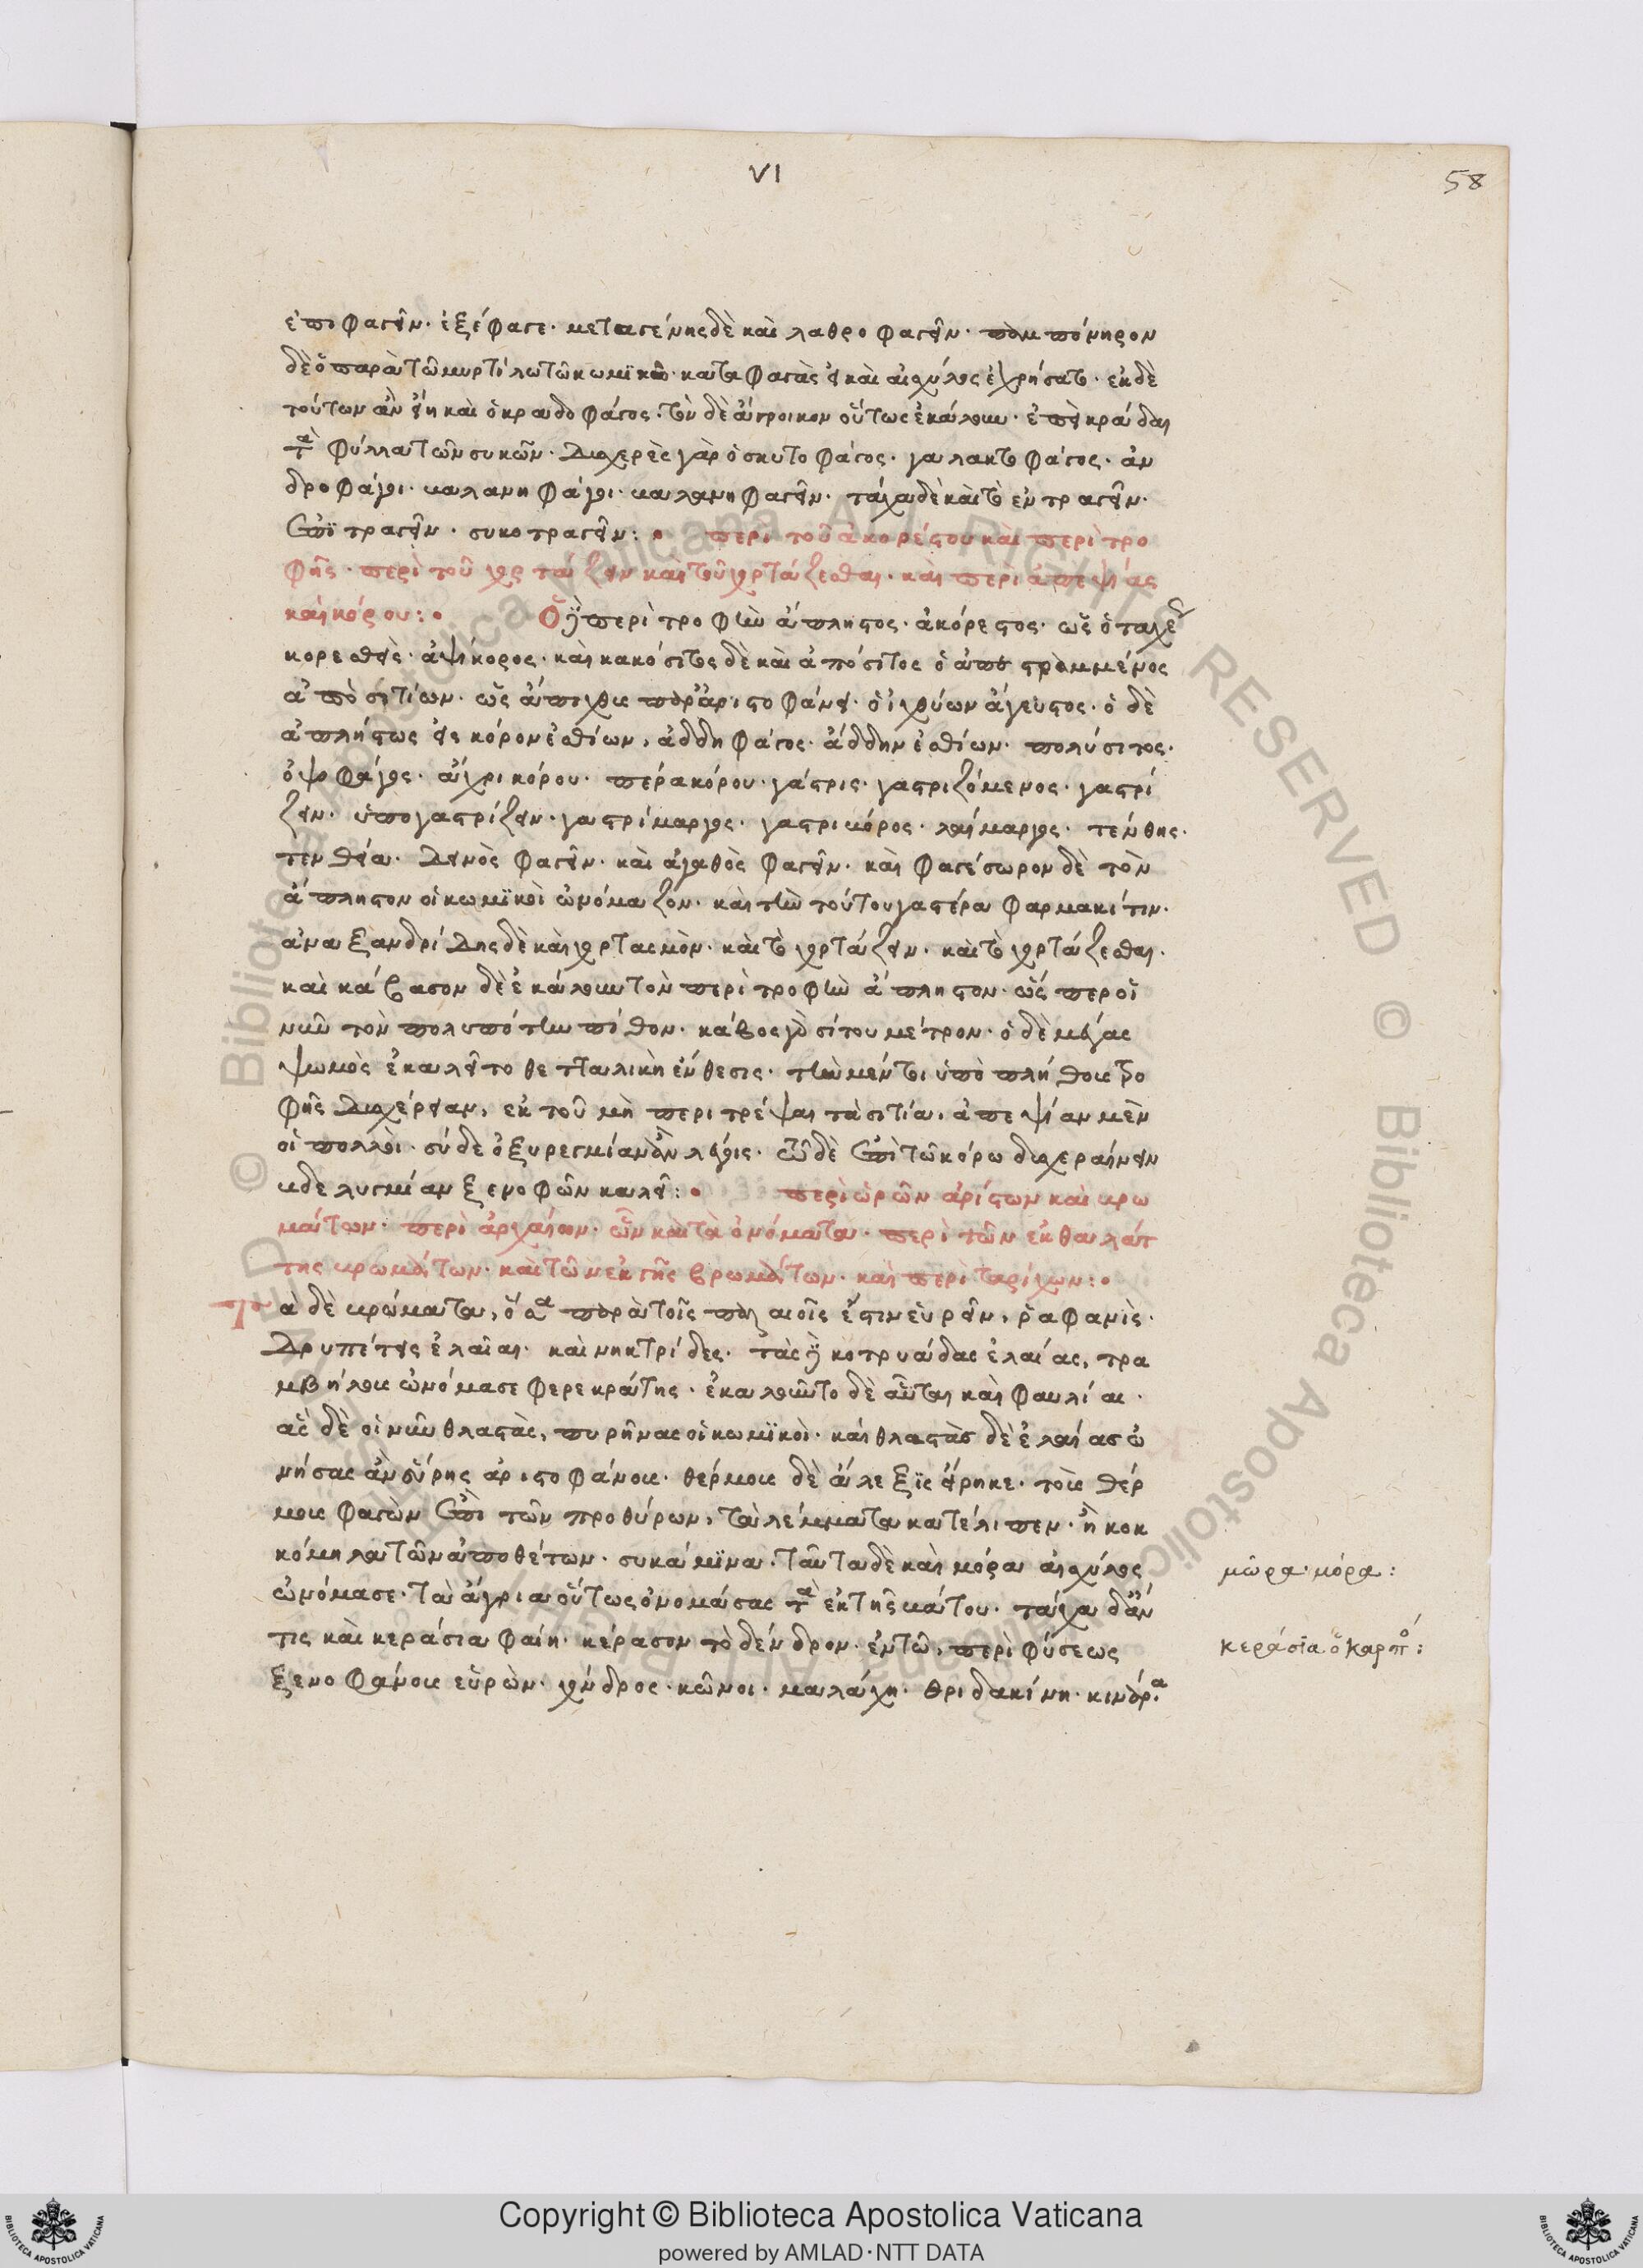 VI
58
ἐπιφαγεῖν· ἐξέφαγε· μεταγένης δὲ καὶ λαθροφαγεῖν· παμπόνηρον
δὲ ὁ παρὰ τῶ μυρτίλω τῶ κωμϊκῶ· καταφαγὰς εἰ καὶ αἰσχύλος ἐχρήσατο· ἐκ δὲ
τούτων ἂν εἴη καὶ ὁ κραδοφάγος· τὸν δὲ ἄγροικον οὕτως ἐκάλουν· ἐπεὶ κράδαι
τὰ φύλλα τῶν συκῶν· δυσχερὲς γὰρ ὁ σκυτοφάγος· γαλακτοφάγος· ἀν
δροφάγοι· καλαμηφάγοι· καλαμηφαγεῖν· τάχα δὲ καὶ τὸ ἐντραγεῖν·
ἐπϊτραγεῖν· συκοτραγεῖν:• περι τοῦ ἀκορέστου καὶ περὶ τρο
φῆς· περὶ τοῦ χορτάζειν καὶ τοῦ χορτάζεσθαι· καὶ περὶ ἀπεψίας
καὶ κόρου:• Ὁ δὲ περὶ τροφὴν ἄπληστος· ἀκόρεστος· ὡς ὁ ταχὺ
κορεσθεὶς· ἁψίκορος· καὶ κακόσιτος δὲ καὶ ἀπόσιτος ὁ ἀπεστραμμένος
ἀπὸ σιτίων· ὡς ἄπιχθυς παρ' ἀριστοφάνει· ὁ ἰχθύων ἄγευστος· ὁ δὲ
ἀπλήστως εἰς κόρον ἐσθίων, ἀδδηφάγος· ἄδδην ἐσθίων· πολύσιτος·
ὀψοφάγος· ἄχρι κόρου· πέρα κόρου· γάστρις· γαστριζόμενος· γαστρί
ζειν· ὑπογαστρίζειν· γαστρίμαργος· γαστρικόρος· λαίμαργος· τένθης·
τενθεία· δεινὸς φαγεῖν· καὶ ἀγαθὸς φαγεῖν· καὶ φαγέσωρον δὲ τὸν
ἄπληστον οἱ κωμϊκοὶ ὠνόμαζον· καὶ τὴν τούτου γαστέρα φαρμακίτιν·
ἀναξανδρίδης δὲ καὶ χορτασμὸν· καὶ τὸ χορτάζειν· καὶ τὸ χορτάζεσθαι·
καὶ κάβασον δὲ ἐκάλουν τὸν περὶ τροφὴν ἄπληστον· ὥσπερ οἱ
νῦν τὸν πολυπότην πίθον· κάβος γὰρ σίτου μέτρον· ὁ δὲ μέγας
ψωμὸς ἐκαλεῖτο θετταλικὴ ἔνθεσις· τὴν μέντοι ὑπὸ πλήθους τρο
φῆς δυσχέρειαν, ἐκ τοῦ μὴ περιτρέψαι τὰ σιτία, ἀπεψίαν μὲν
οἱ πολλοὶ· σύ δε ὀξυρεγμίαν ἂν λέγοις· τὸ δὲ ἐπὶ τῶ κόρω δυσχεραίνειν
βδελυγμίαν ξενοφῶν καλεῖ:• περὶ ὡρῶν ἀρίστων καὶ βρω
μάτων· περὶ ἀρχαίων· ὧν καὶ τὰ ὀνόματα· περὶ τῶν ἐκ θαλάτ
της βρωμάτων· καὶ τῶν ἐκ γῆς βρωμάτων· καὶ περὶ ταρίχων:•
Τὰ δὲ βρώματα, ὅσα παρὰ τοῖς παλαιοῖς ἔστιν εὑρεῖν, ῥαφανὶς·
δρυπέτεις ἐλαῖαι· καὶ νηκτρίδες· τὰς δὲ κοτρυάδας ἐλαίας, τρα
μβήλους ὠνόμασε φερεκράτης· ἐκαλοῦντο δὲ αὗται καὶ φαυλίαι·
ἃς δὲ οἱ νῦν θλαστὰς, πυρῆνας οἱ κωμϊκοὶ· καὶ θλαστὰς δὲ ἐλαίας ὠ
νήσας ἂν εὕρης ἀριστοφάνους· θέρμους δὲ ἄλεξϊς εἴρηκε· τοὺς θέρ
μους φαγὼν ἐπὶ τῶν προθύρων, τὰ λέμματα κατέλιπεν· ἢ κοκ
κόμηλα τῶν ἀποθέτων· συκάμϊνα· ταῦτα δὲ καὶ μόρα αἰσχύλος
ὠνόμασε· τὰ ἄγρια οὕτως ὀνομάσας τὰ ἐκ τῆς βάτου· τάχα δ' ἄν
τις καὶ κεράσια φαίη· κέρασον τὸ δένδρον· ἐν τῶ, περὶ φύσεως
ξενοφάνους εὑρὼν· χόνδρος· κῶνοι· μαλάχη· θριδακίνη· κινάρα
μῶρα· μόρα:
κεράσϊα ὁ καρπό:
© Biblioteca Apostolica Vaticana ALL RIGHTS RESERVED
Copyright © Biblioteca Apostolica Vaticana
powered by AMLAD·NTT DATA
BIBLIOTECA APOSTOLICA VATICANA